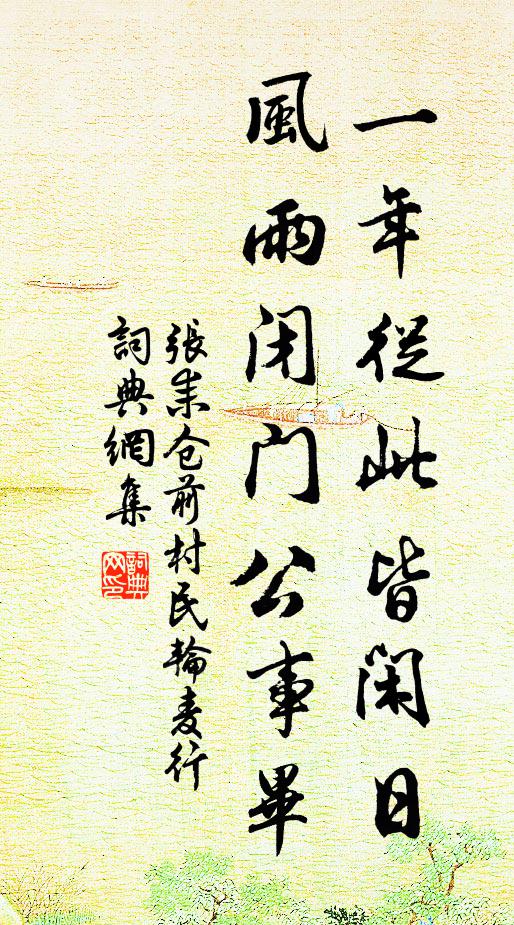 一年從此皆閑日
風雨閉門公事畢
張耒仓前村民輪麦行
詞典網集
詞典
网印